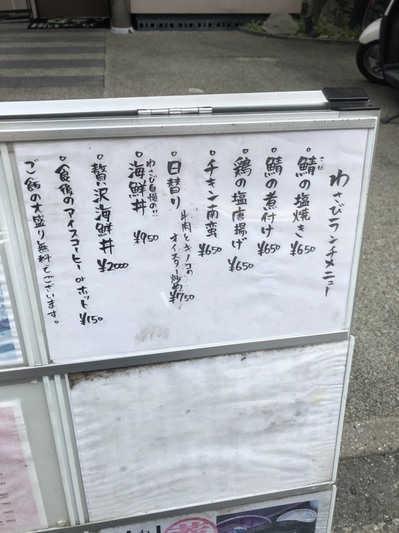 わさびランチメニュー
。鯖の塩焼き ¥650
さば
。鯖の煮付け ¥650
。鶏の塩唐揚げ ¥650
。チキン南蛮 ¥650
。日替り 牛肉とキノコの
オイスター炒め ¥750
わさび自慢の!!
。海鮮丼 ¥950
。贅沢海鮮丼 ¥2000
。食後のアイスコーヒー orホット ¥150
ご飯の大盛り無料でございます。